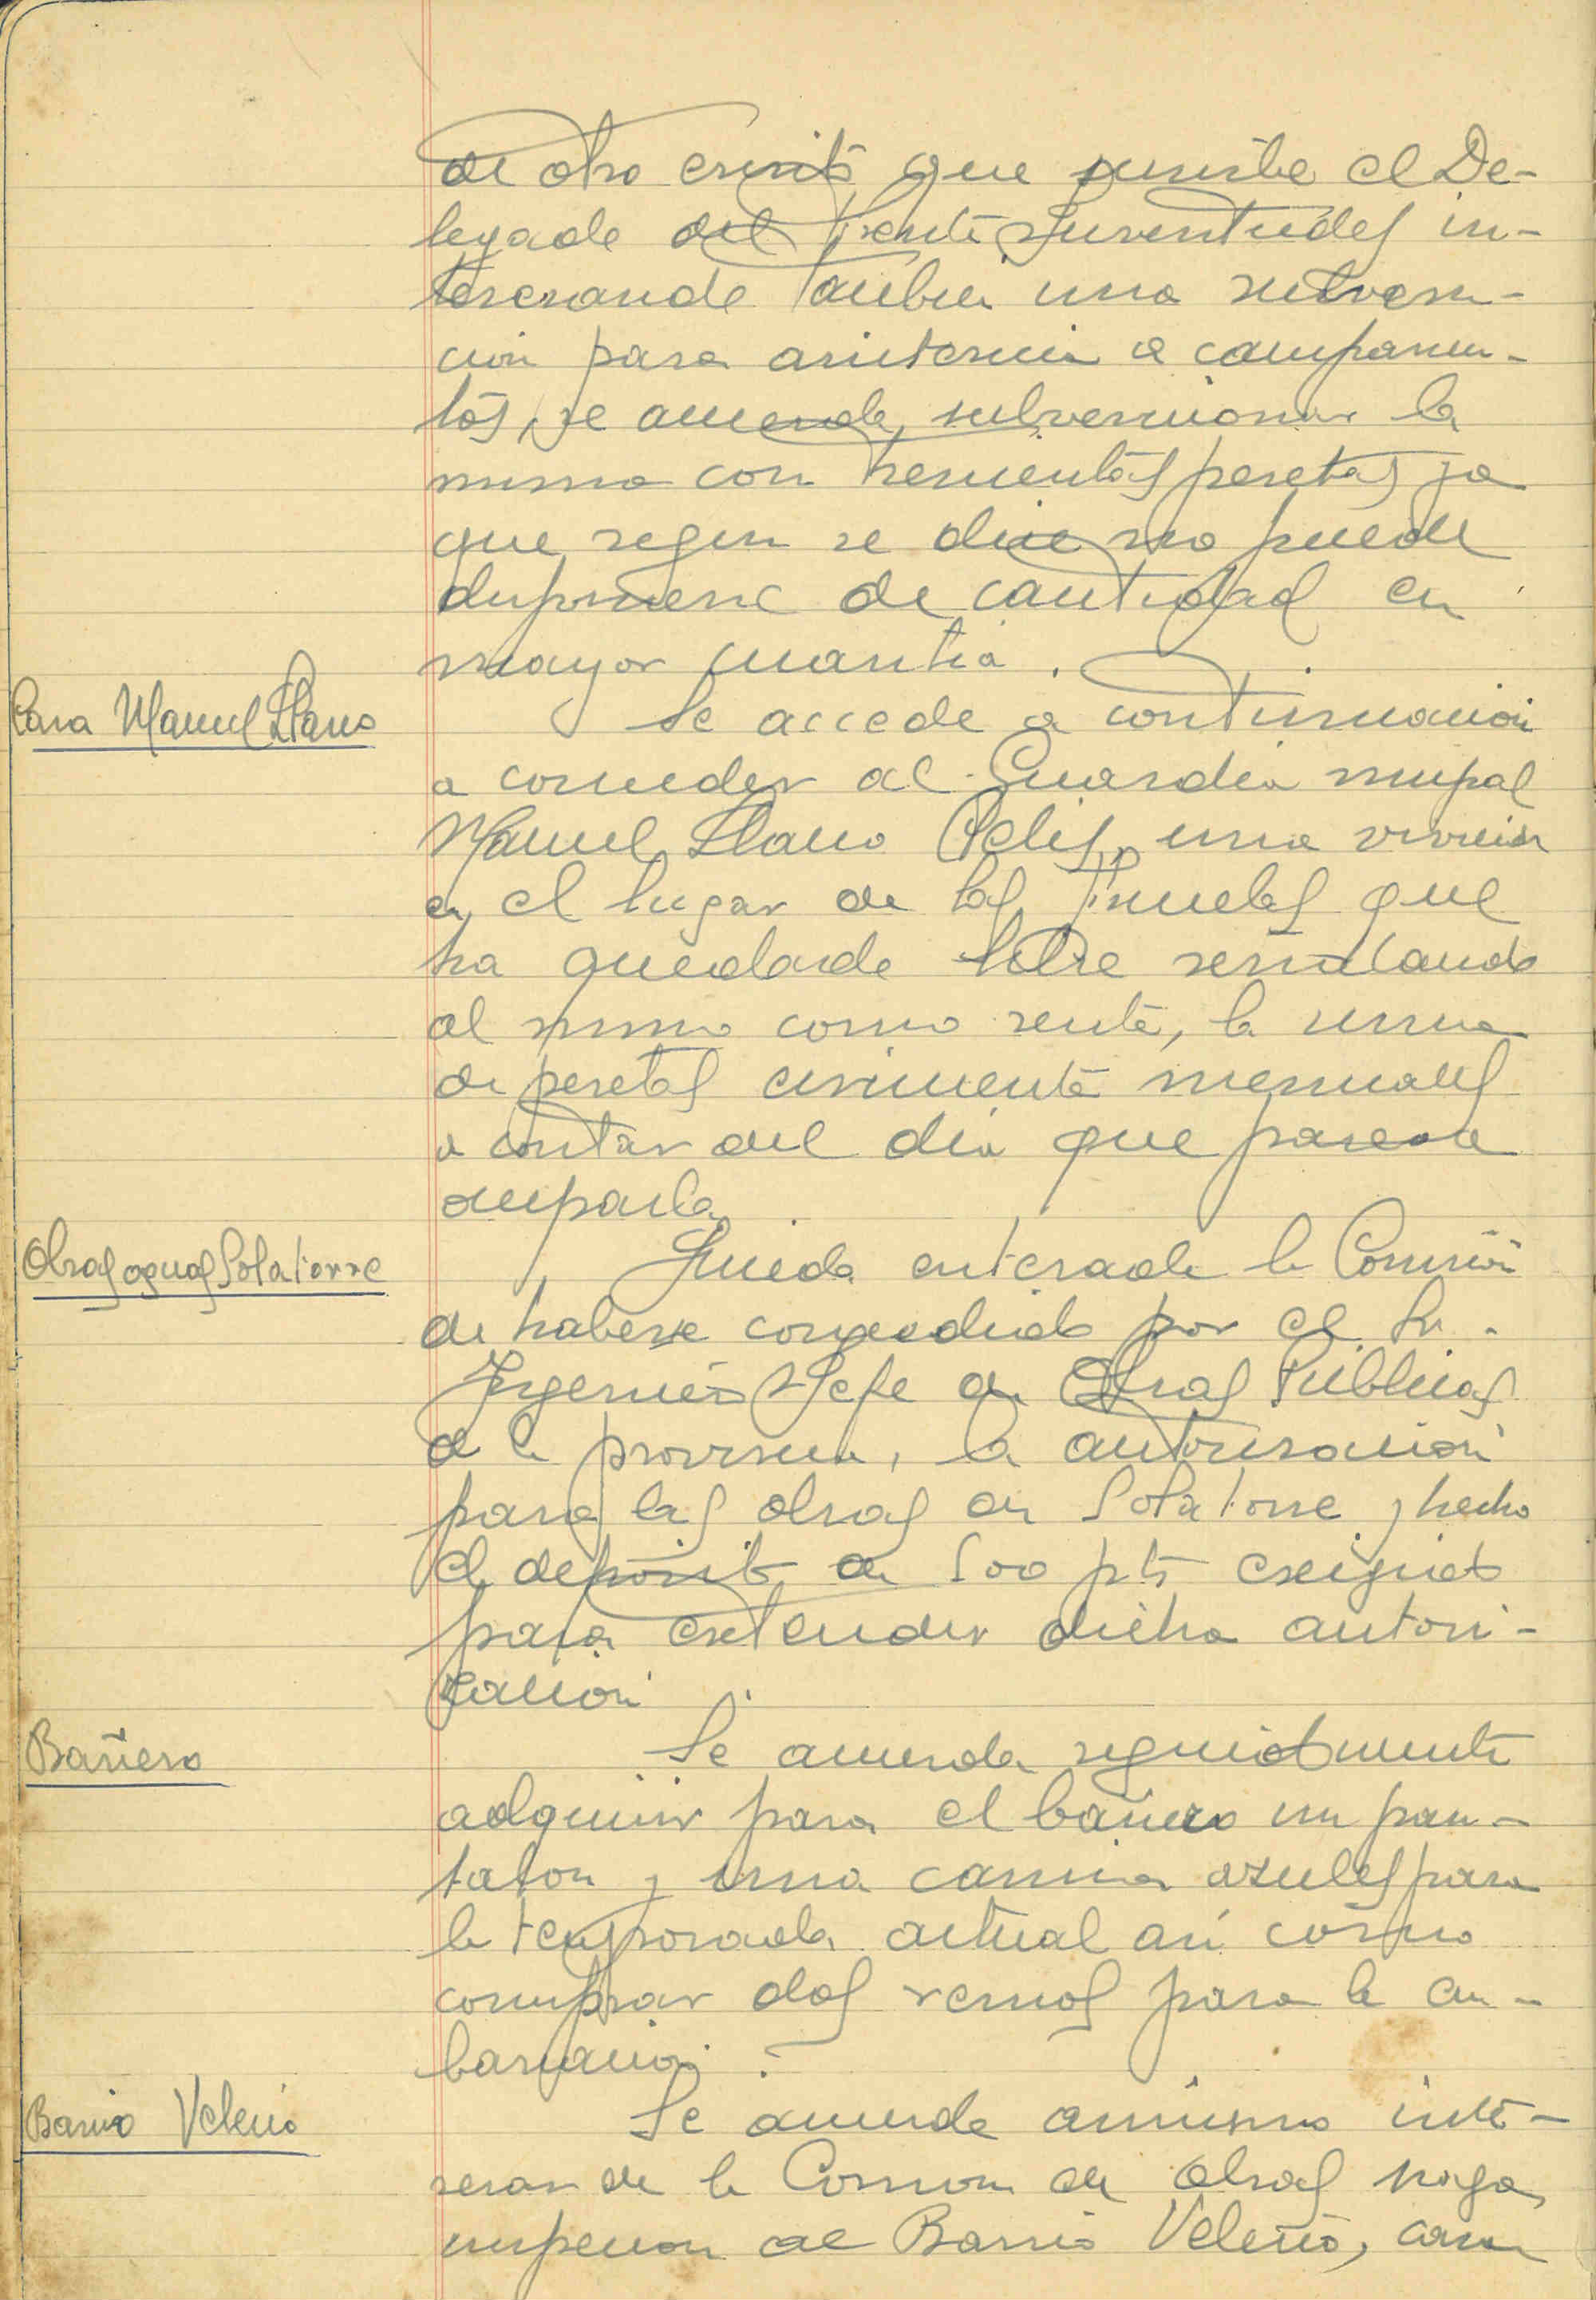 de otro escrito que suscribe el De-
legado del Frente Juventudes in-
teresando tambien una subven-
ción para asistencia a campamen-
tos, se acuerda subvencionar la
misma con trescientas pesetas ya
que segun se dice no puede
disponerse de cantidad en
mayor cuantia.
Casa Manuel Llano
Se accede a continuación
a conceder al Guardia mupal
Manuel Llano Pelis, una vivienda
en el lugar de las que
ha quedado libre señalando
al mismo como renta, la suma
de pesetas cincuenta mensuales
a contar del dia que pase a
ocuparla
Obras aguas Solatorre
Queda enterada la Comisión
de haberse concedido por el Sr.
Ingeniero Jefe de Obras Públicas
de la provincia, la autorización
para las obras en Solatorre y hecho
el depósito de 500 pts exigido
para extender dicha autori-
zación
Bañero
Se acuerda seguidamente
adquirir para el bañero un pan-
talon y una camisa azules para
la temporada actual asi como
comprar dos remos para la em-
barcación.
Barrio Veleño
Se acuerda asimismo inte-
resar de la Comisión de Obras haga
inspección al Barrio Veleño, casa